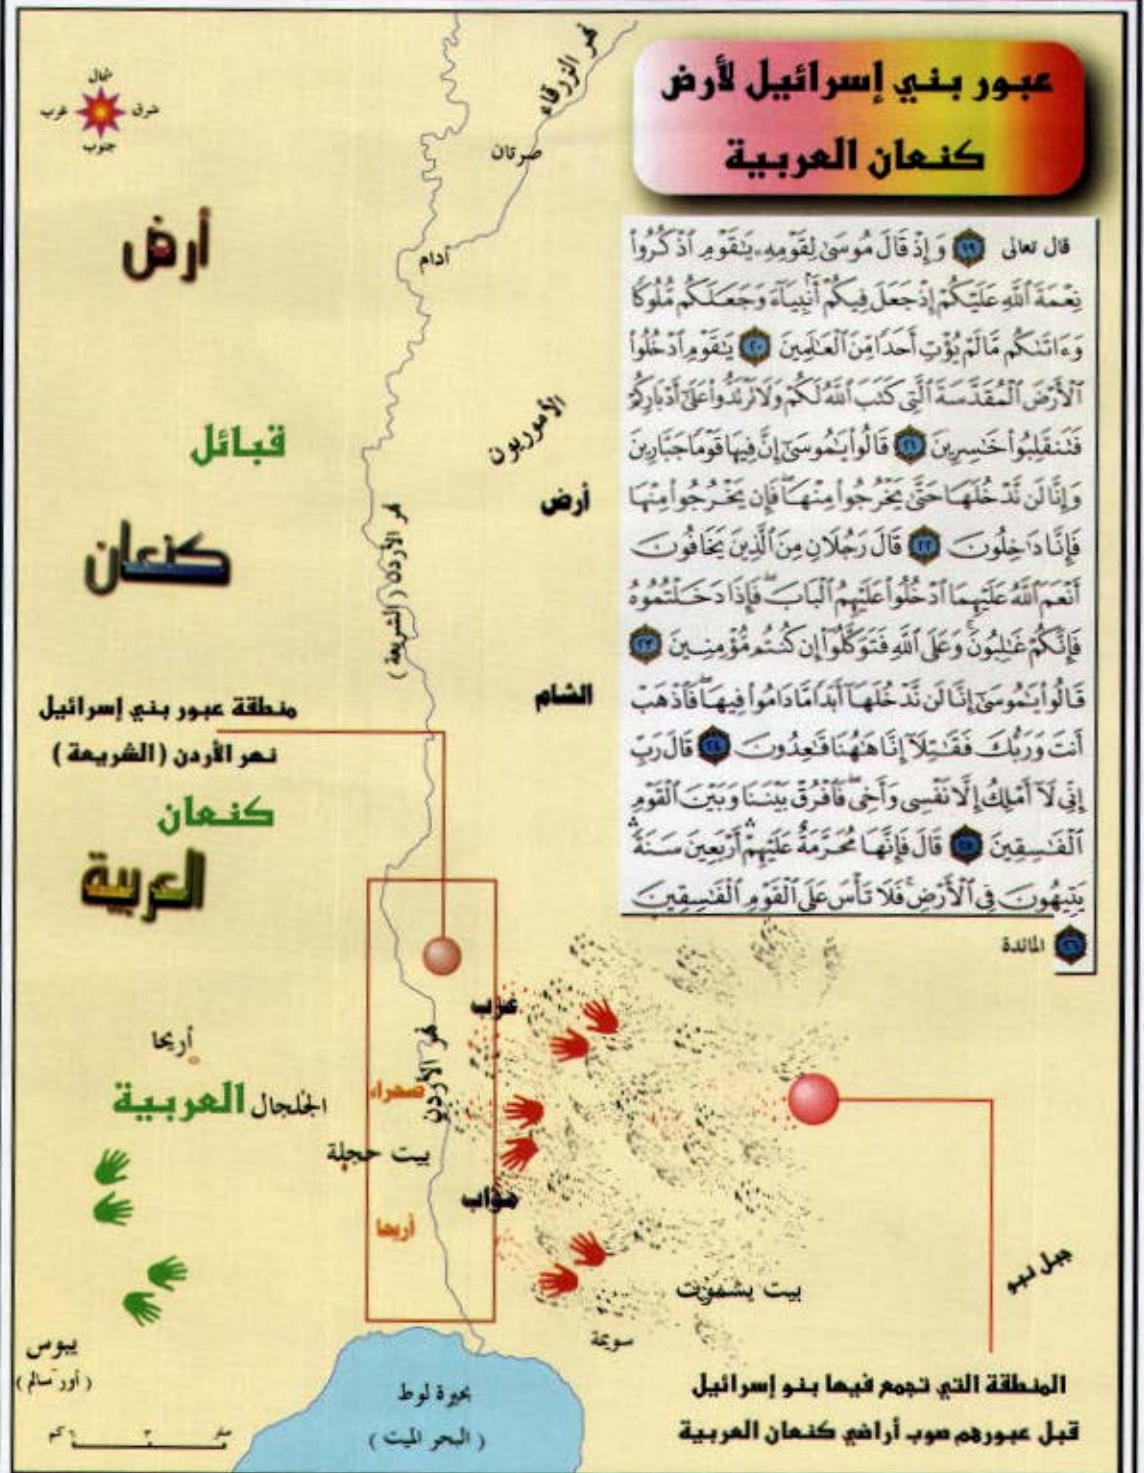 عبور بني إسرائيل لأرض
كنعان العربية
شمال
شرق
غرب
جنوب
نهر الزرقاء
صرتان
أدام
قال تعالى ١٩ وَإِذْ قَالَ مُوسَىٰ لِقَوْمِهِۦ يَـٰقَوْمِ ٱذْكُرُوا۟
نِعْمَةَ ٱللَّهِ عَلَيْكُمْ إِذْ جَعَلَ فِيكُمْ أَنۢبِيَآءَ وَجَعَلَكُم مُّلُوكًا
وَءَاتَىٰكُم مَّا لَمْ يُؤْتِ أَحَدًا مِّنَ ٱلْعَـٰلَمِينَ ٢٠ يَـٰقَوْمِ ٱدْخُلُوا۟
ٱلْأَرْضَ ٱلْمُقَدَّسَةَ ٱلَّتِى كَتَبَ ٱللَّهُ لَكُمْ وَلَا تَرْتَدُّوا۟ عَلَىٰٓ أَدْبَارِكُمْ
فَتَنقَلِبُوا۟ خَـٰسِرِينَ ٢١ قَالُوا۟ يَـٰمُوسَىٰٓ إِنَّ فِيهَا قَوْمًا جَبَّارِينَ
وَإِنَّا لَن نَّدْخُلَهَا حَتَّىٰ يَخْرُجُوا۟ مِنْهَا فَإِن يَخْرُجُوا۟ مِنْهَا
فَإِنَّا دَٰخِلُونَ ٢٢ قَالَ رَجُلَانِ مِنَ ٱلَّذِينَ يَخَافُونَ
أَنْعَمَ ٱللَّهُ عَلَيْهِمَا ٱدْخُلُوا۟ عَلَيْهِمُ ٱلْبَابَ فَإِذَا دَخَلْتُمُوهُ
فَإِنَّكُمْ غَـٰلِبُونَ ۚ وَعَلَى ٱللَّهِ فَتَوَكَّلُوٓا۟ إِن كُنتُم مُّؤْمِنِينَ ٢٣
قَالُوا۟ يَـٰمُوسَىٰٓ إِنَّا لَن نَّدْخُلَهَآ أَبَدًا مَّا دَامُوا۟ فِيهَا ۖ فَٱذْهَبْ
أَنتَ وَرَبُّكَ فَقَـٰتِلَآ إِنَّا هَـٰهُنَا قَـٰعِدُونَ ٢٤ قَالَ رَبِّ
إِنِّى لَآ أَمْلِكُ إِلَّا نَفْسِى وَأَخِى ۖ فَٱفْرُقْ بَيْنَنَا وَبَيْنَ ٱلْقَوْمِ
ٱلْفَـٰسِقِينَ ٢٥ قَالَ فَإِنَّهَا مُحَرَّمَةٌ عَلَيْهِمْ ۛ أَرْبَعِينَ سَنَةً ۛ
يَتِيهُونَ فِى ٱلْأَرْضِ ۚ فَلَا تَأْسَ عَلَى ٱلْقَوْمِ ٱلْفَـٰسِقِينَ
٢٦ المائدة
أرض
قبائل
كنعان
الأموريون
أرض
نهر الأردن (الشريعة)
الشام
منطقة عبور بني إسرائيل
نهر الأردن (الشريعة)
كنعان
العربية
عرب
نهر الأردن
أريحا
صحراء
العربية
الجلجال
بيت حجلة
مؤاب
أريحا
جبل نبو
بيت يشموت
سويمة
يبوس
(أور سالم)
بحيرة لوط
(البحر الميت)
المنطقة التي تجمع فيها بنو إسرائيل
قبل عبورهم صوب أراضي كنعان العربية
صفر ٣ ٦ كم